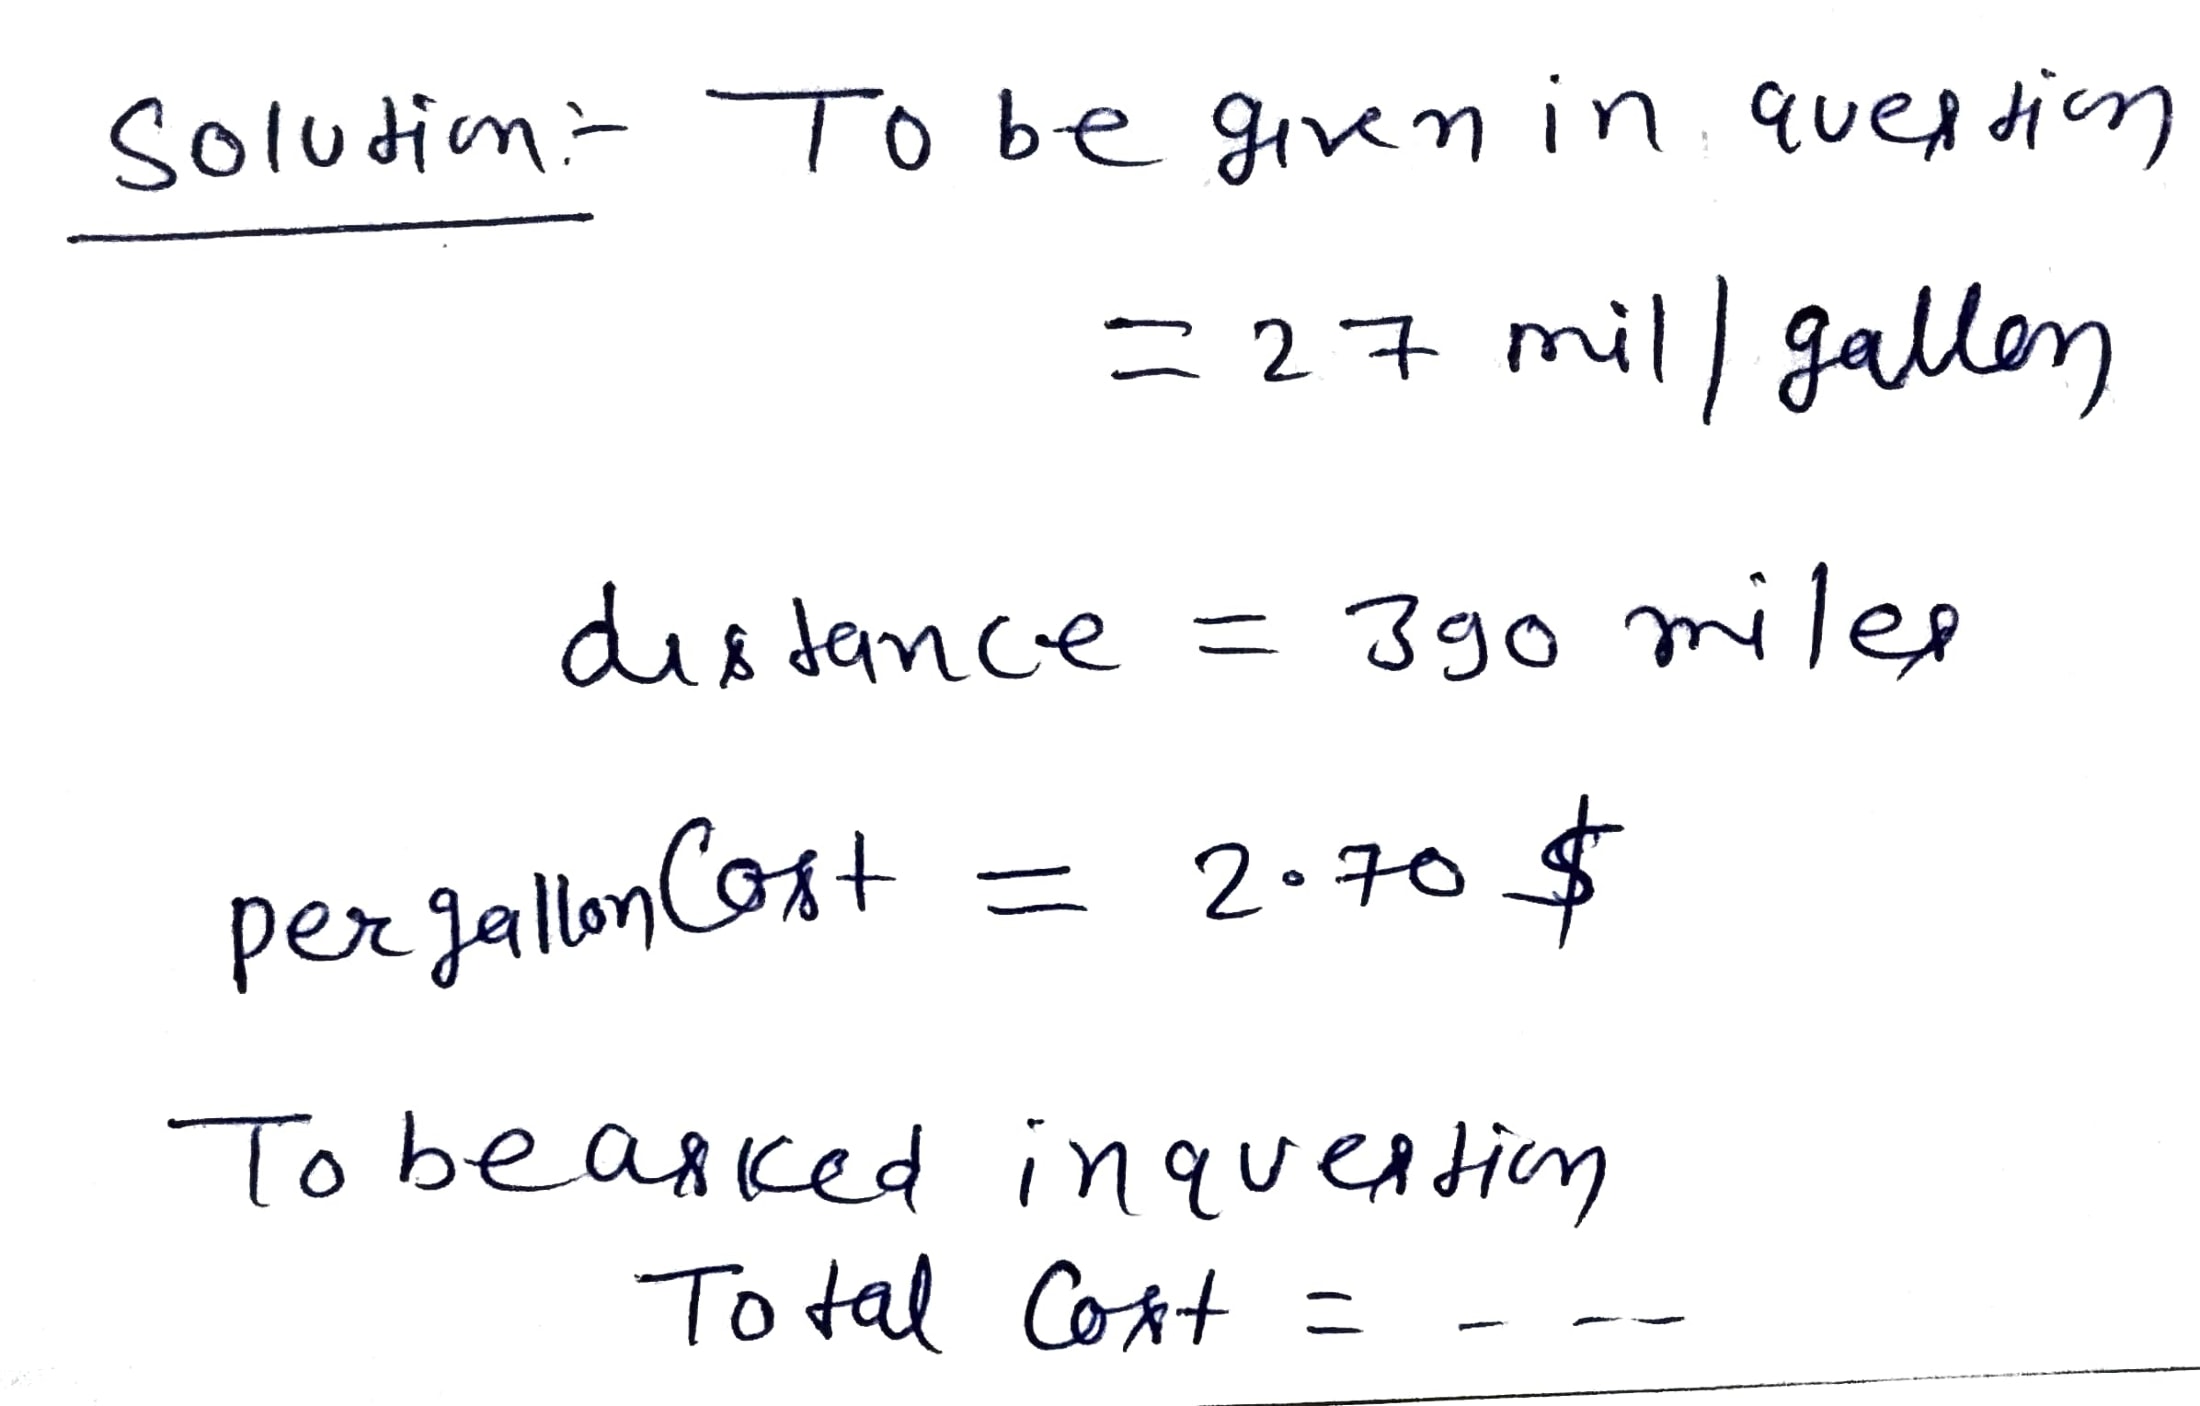 Solution:- To be given in question
= 27 mil/gallon
distance = 390 miles
per gallon Cost = 2.70 $
To be asked in question
Total Cost = - --